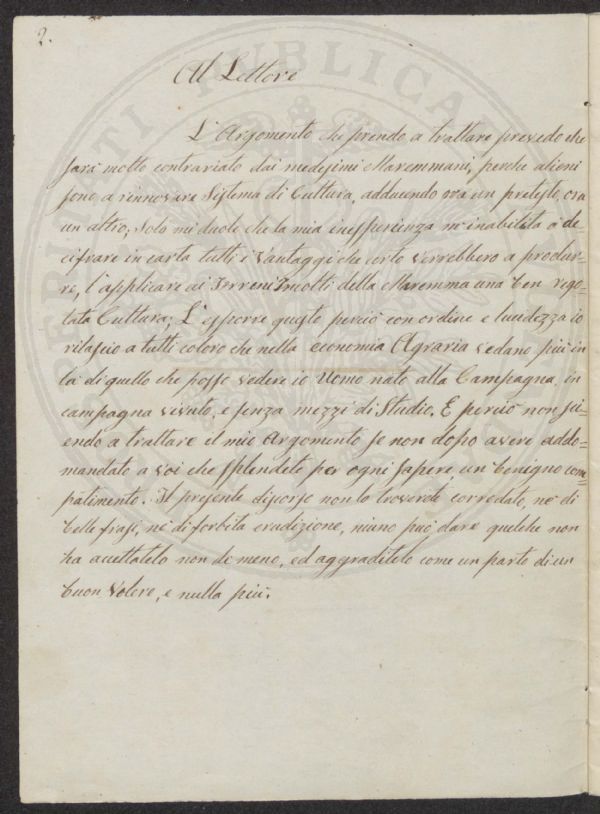 2.
Al Lettore
L'Argomento che prendo a trattare prevedo che
sarà molto contrariato dai medesimi Maremmani, perche alieni
sono a rinnovare Sistema di Cultura, adducendo ora un pretesto, ora
un altro; solo mi duole che la mia inesperienza m'inabilita a de
cifrare in carta tutti i Vantaggi che certo verrebbero a produr=
re, l'applicare ai Terreni Incolti della Maremma una ben rego=
lata Cultura; L'esporre questo perciò con ordine e lucidezza io
rilascio a tutti coloro che nella economia Agraria vedano più in
là di quello che posso vedere io Uomo nato alla Campagna, in
campagna vivuto, e senza mezzi di Studio. E perciò non sci=
endo a trattare il mio Argomento se non dopo avere addo=
mandato a Voi che splendete per ogni sapere un benigno com=
patimento. Il presente discorso non lo troverete corredato, nè di
belle frasi, nè di forbita erudizione, niuno può dare quelche non
ha accettatelo non di meno, ed aggraditelo come un parto di un
buon Volere, e nulla più.
REPERITATI PUBLICA